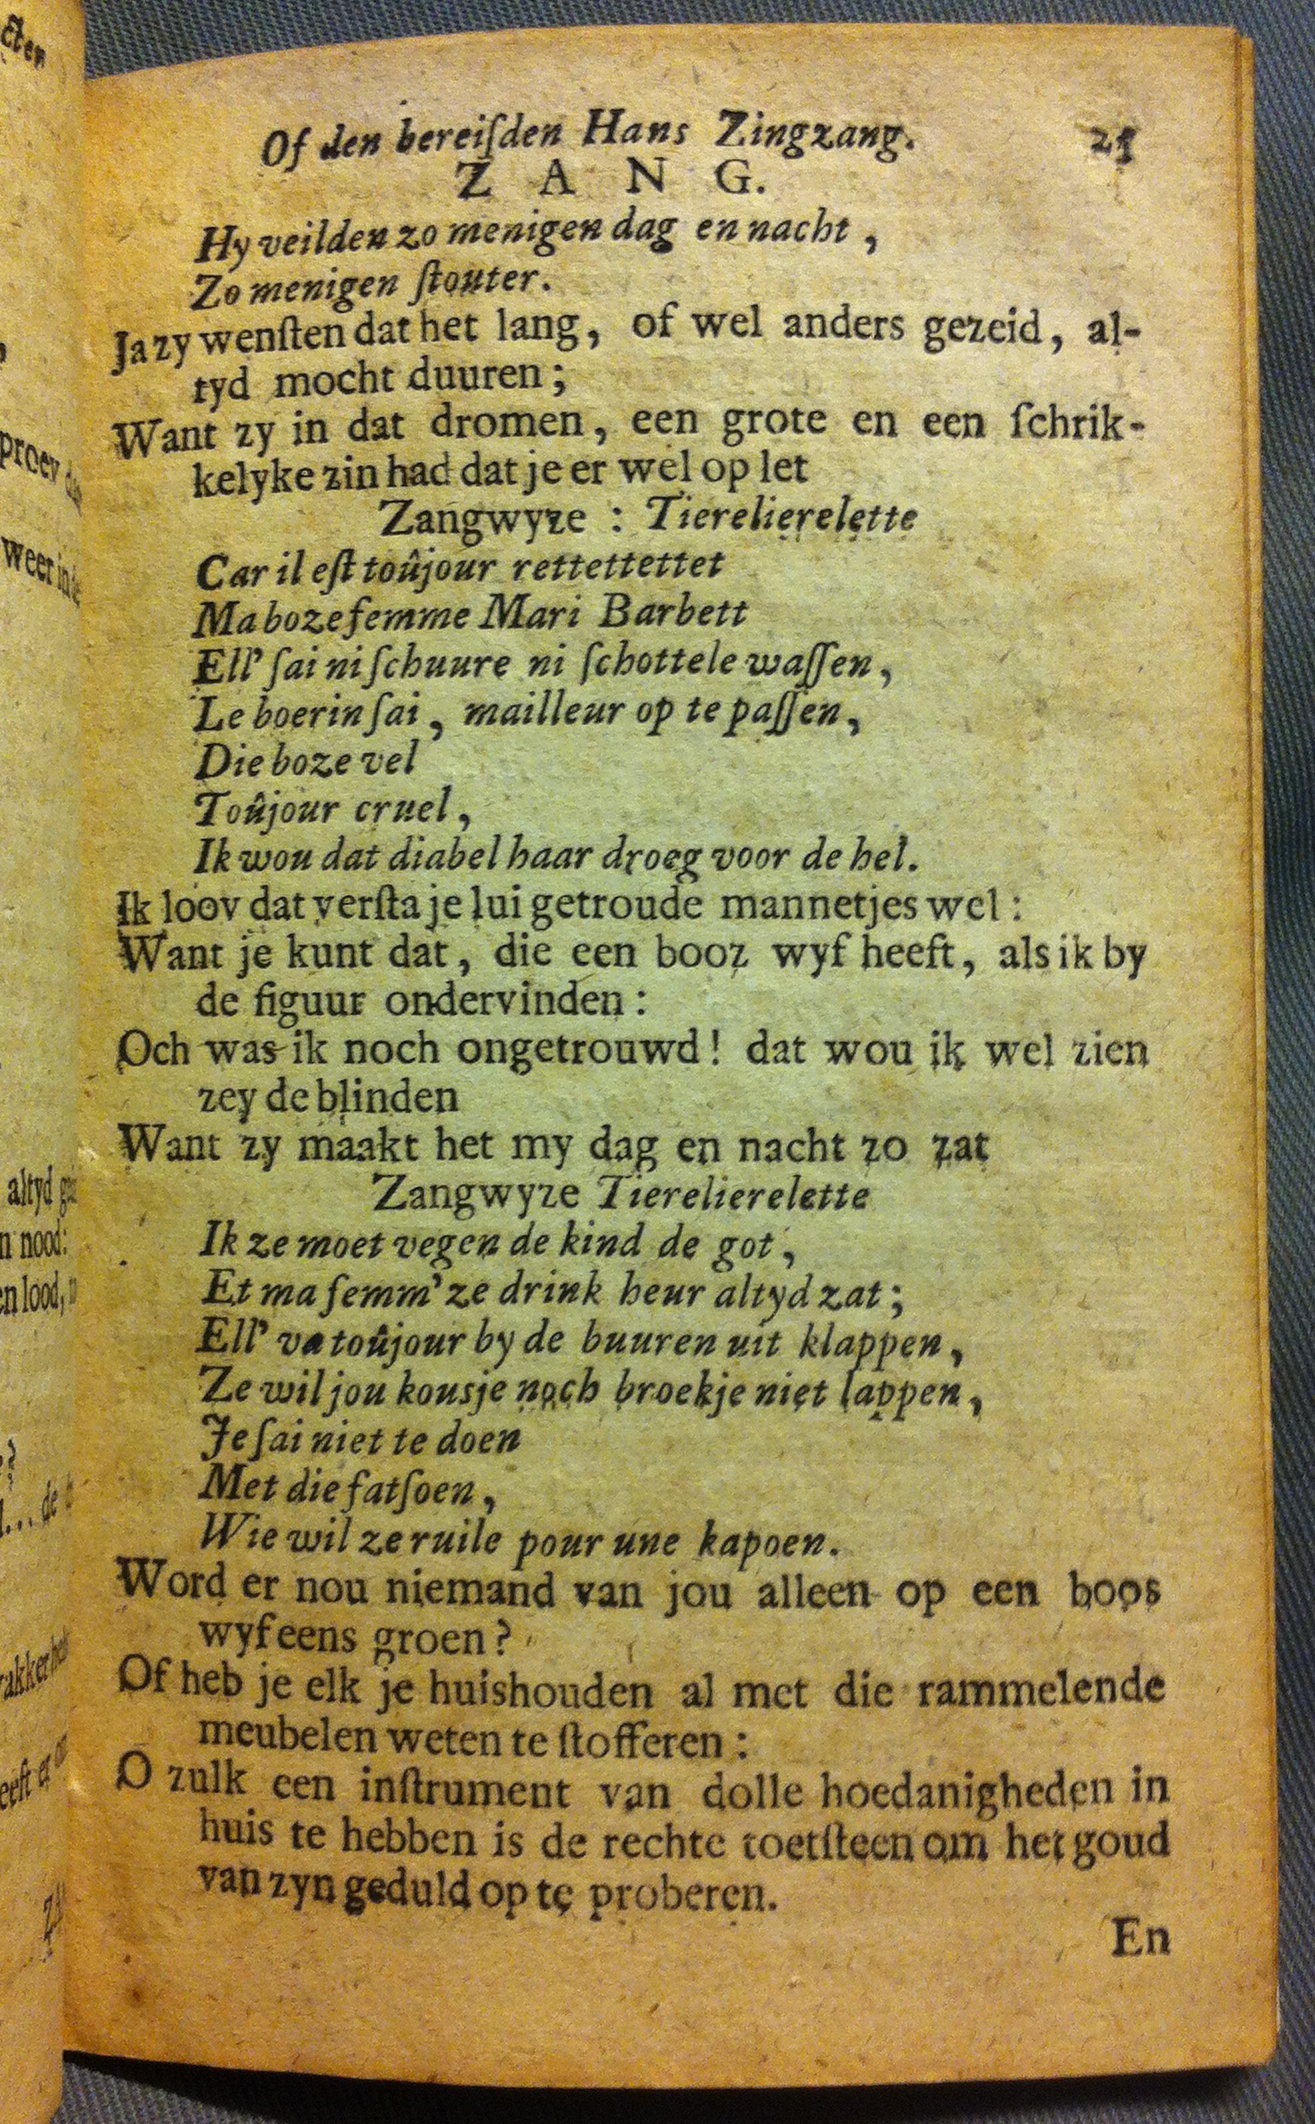 Of den bereiſden Hans Zingzang. 25
Z A N G.
Hy veilden zo menigen dag en nacht,
Zo menigen ſtouter.
Ja zy wenſten dat het lang, of wel anders gezeid, al-
tyd mocht duuren;
Want zy in dat dromen, een grote en een ſchrik-
kelyke zin had dat je er wel op let
Zangwyze: Tierelierelette
Car il eſt toûjour rettettettet
Ma boze femme Mari Barbett
Ell' ſai ni ſchuure ni ſchottele waſſen,
Le boerin ſai, mailleur op te paſſen,
Die boze vel
Toûjour cruel,
Ik wou dat diabel haar droeg voor de hel.
Ik loov dat verſta je lui getroude mannetjes wel:
Want je kunt dat, die een booz wyf heeft, als ik by
de figuur ondervinden:
Och was ik noch ongetrouwd! dat wou ik wel zien
zey de blinden
Want zy maakt het my dag en nacht zo zat
Zangwyze Tierelierelette
Ik ze moet vegen de kind de got,
Et ma femm' ze drink heur altyd zat;
Ell' va toûjour by de buuren uit klappen,
Ze wil jou kousje noch broekje niet lappen,
Je ſai niet te doen
Met die fatſoen,
Wie wil ze ruile pour une kapoen.
Word er nou niemand van jou alleen op een boos
wyf eens groen?
Of heb je elk je huishouden al met die rammelende
meubelen weten te ſtofferen:
O zulk een inſtrument van dolle hoedanigheden in
huis te hebben is de rechte toetſteen om het goud
van zyn geduld op te proberen.
En